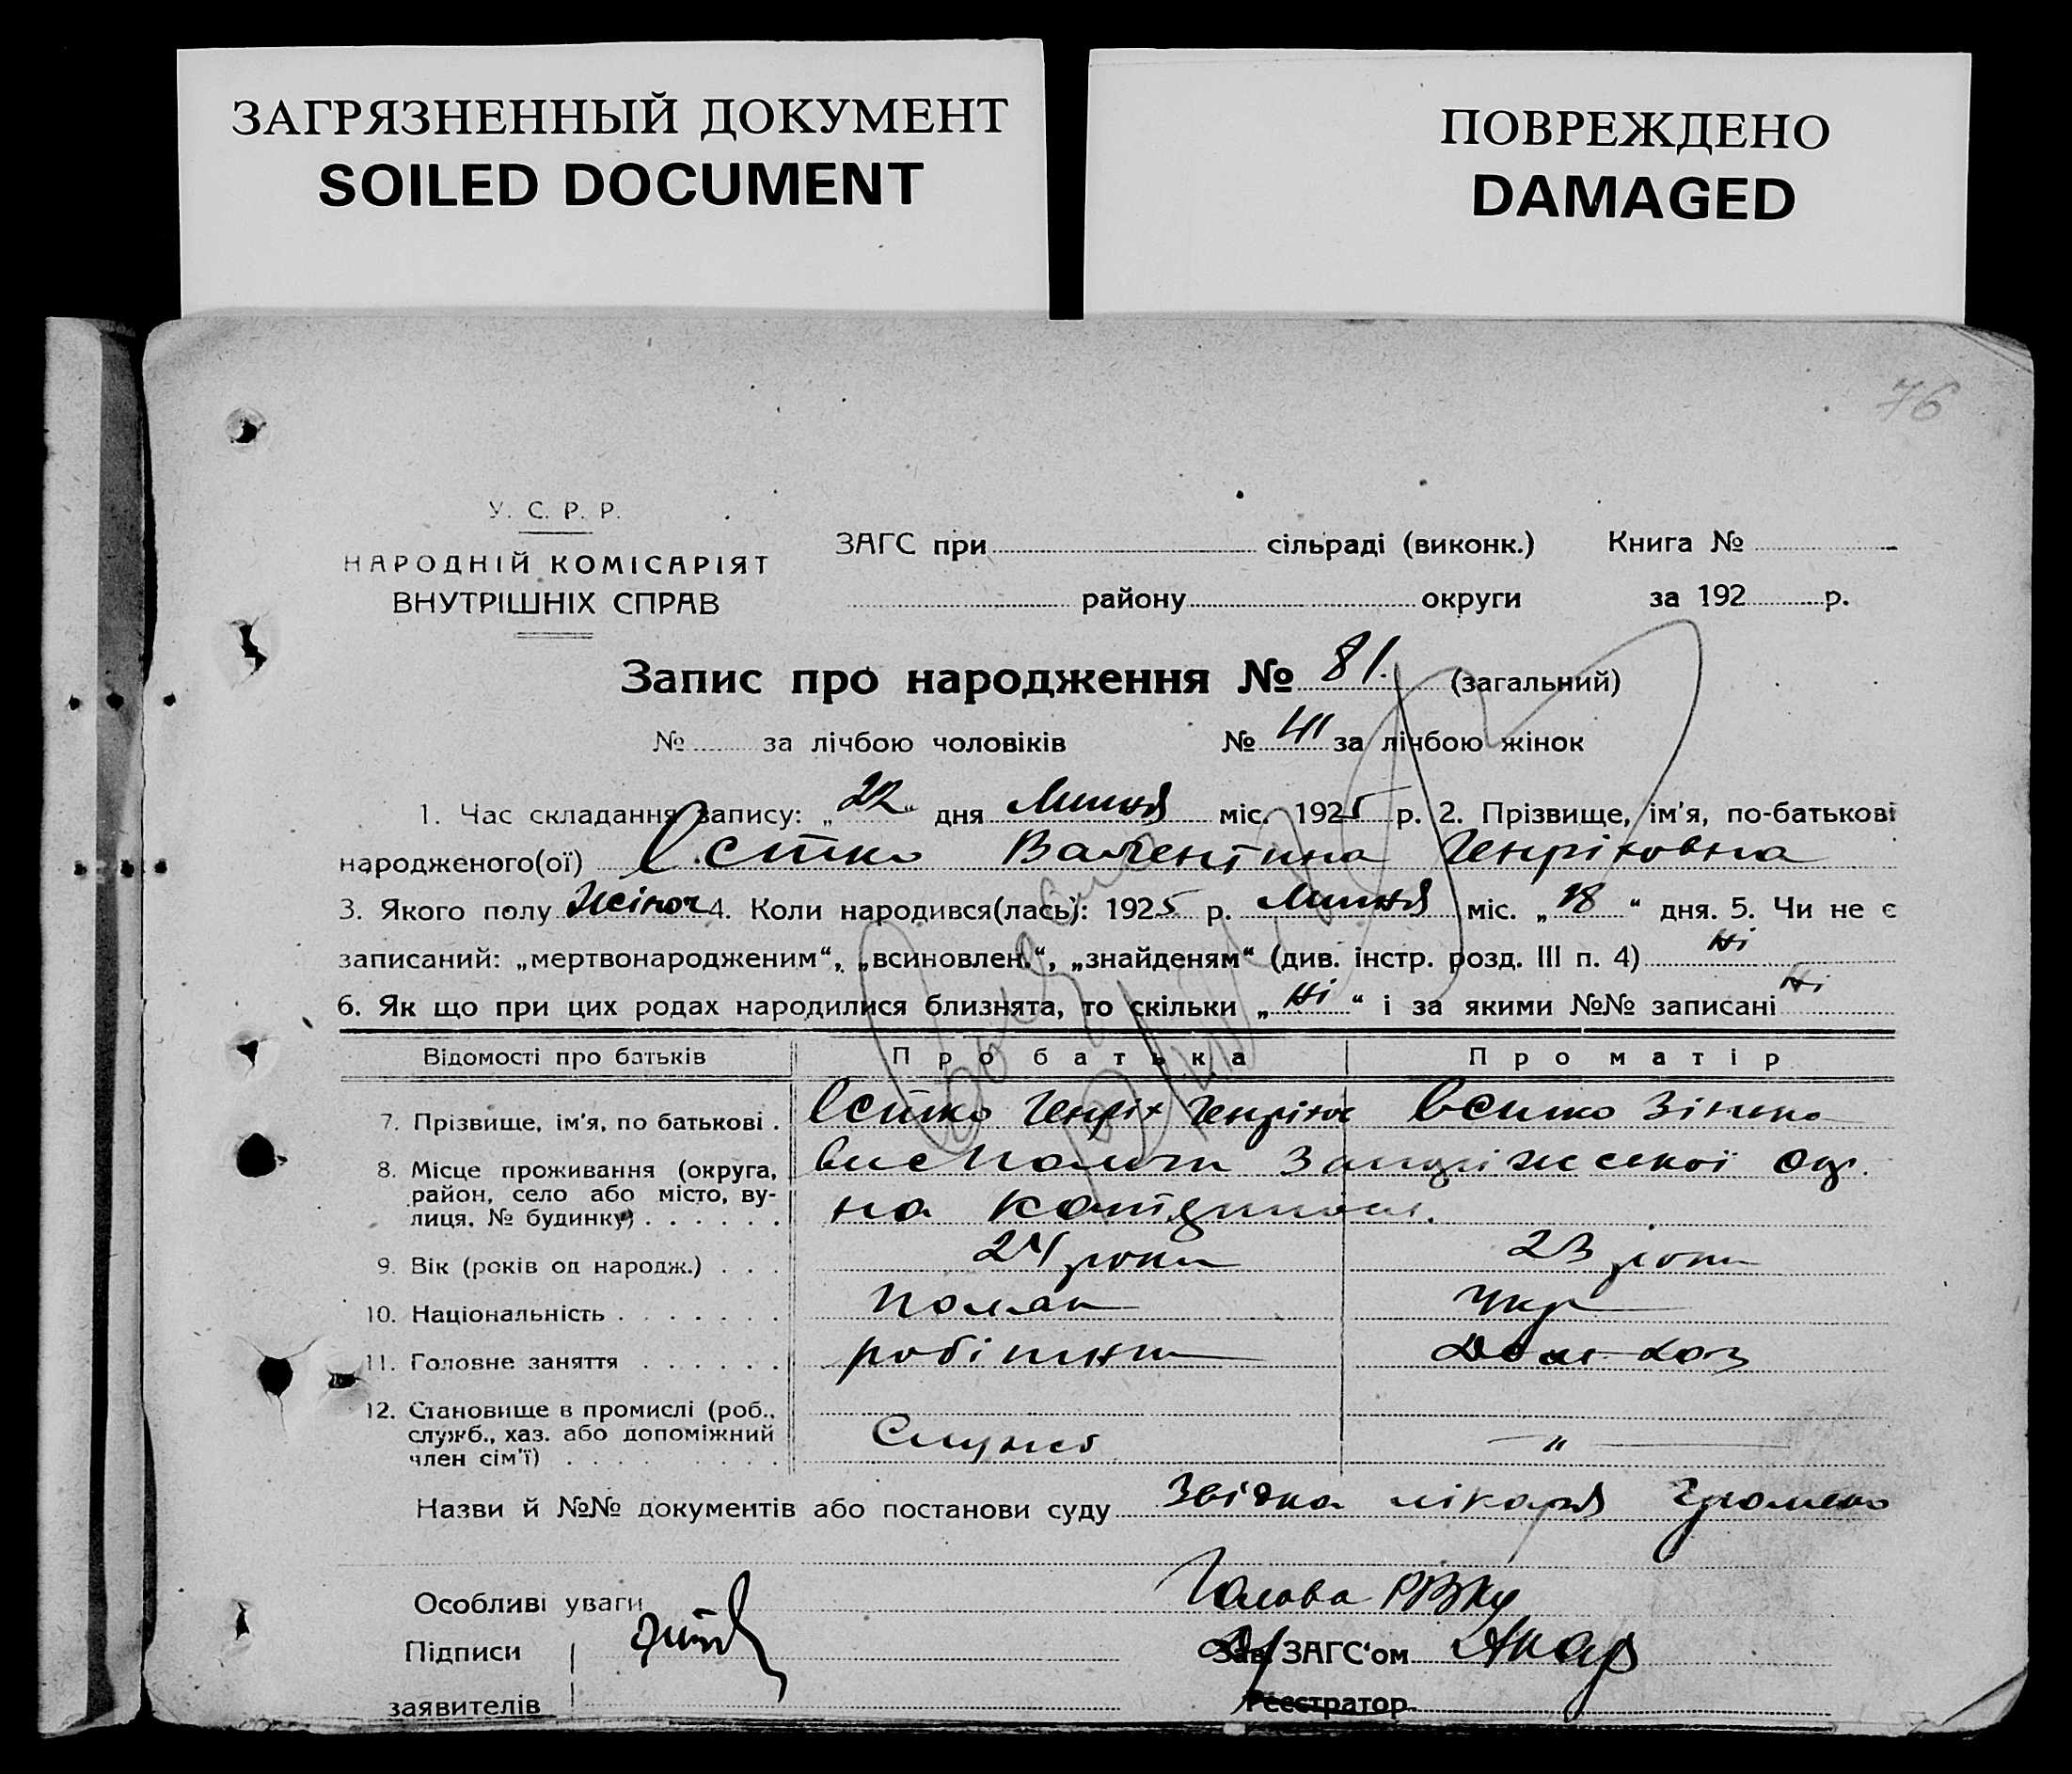 ЗАГРЯЗНЕННЫЙ ДОКУМЕНТ
SOILED DOCUMENT
ПОВРЕЖДЕНО
DAMAGED
76
У. С. Р. Р.
НАРОДНІЙ КОМІСАРІЯТ
ВНУТРІШНІХ СПРАВ
ЗАГС при сільраді (виконк.) Книга №
району округи за 192 р.
Запис про народження № 81. (загальний)
№ за лічбою чоловіків № 41 за лічбою жінок
1. Час складання запису: „22“ дня Липня міс. 1925 р. 2. Прізвище, ім'я, по-батькові
народженого(ої) Валентина Генріховна
3. Якого полу жіноч 4. Коли народився(лась): 1925 р. Липня міс. „18“ дня. 5. Чи не є
записаний: „мертвонародженим“, „всиновлен.“, „знайденям“ (див. інстр. розд. III п. 4) Ні
6. Як що при цих родах народилися близнята, то скільки „Ні“ і за якими №№ записані Ні
Відомості про батьків Про батька Про матір
7. Прізвище, ім'я, по батькові . Генріх
8. Місце проживання (округа, Запоріжської Окр.
район, село або місто, ву- на
лиця, № будинку) . . . . . .
9. Вік (років од народж.) . . . 24 роки 23 роки
10. Національність . . . . . . . Поляк Укр
11. Головне заняття . . . . . . робітник Дом хоз
12. Становище в промислі (роб.,
служб., хаз. або допоміжний Служб "
член сім'ї) . . . . . . . . .
Назви й №№ документів або постанови суду Звідка лікаря
Особливі уваги Голова РВКу
Підписи Зав. ЗАГС'ом
заявителів Реєстратор